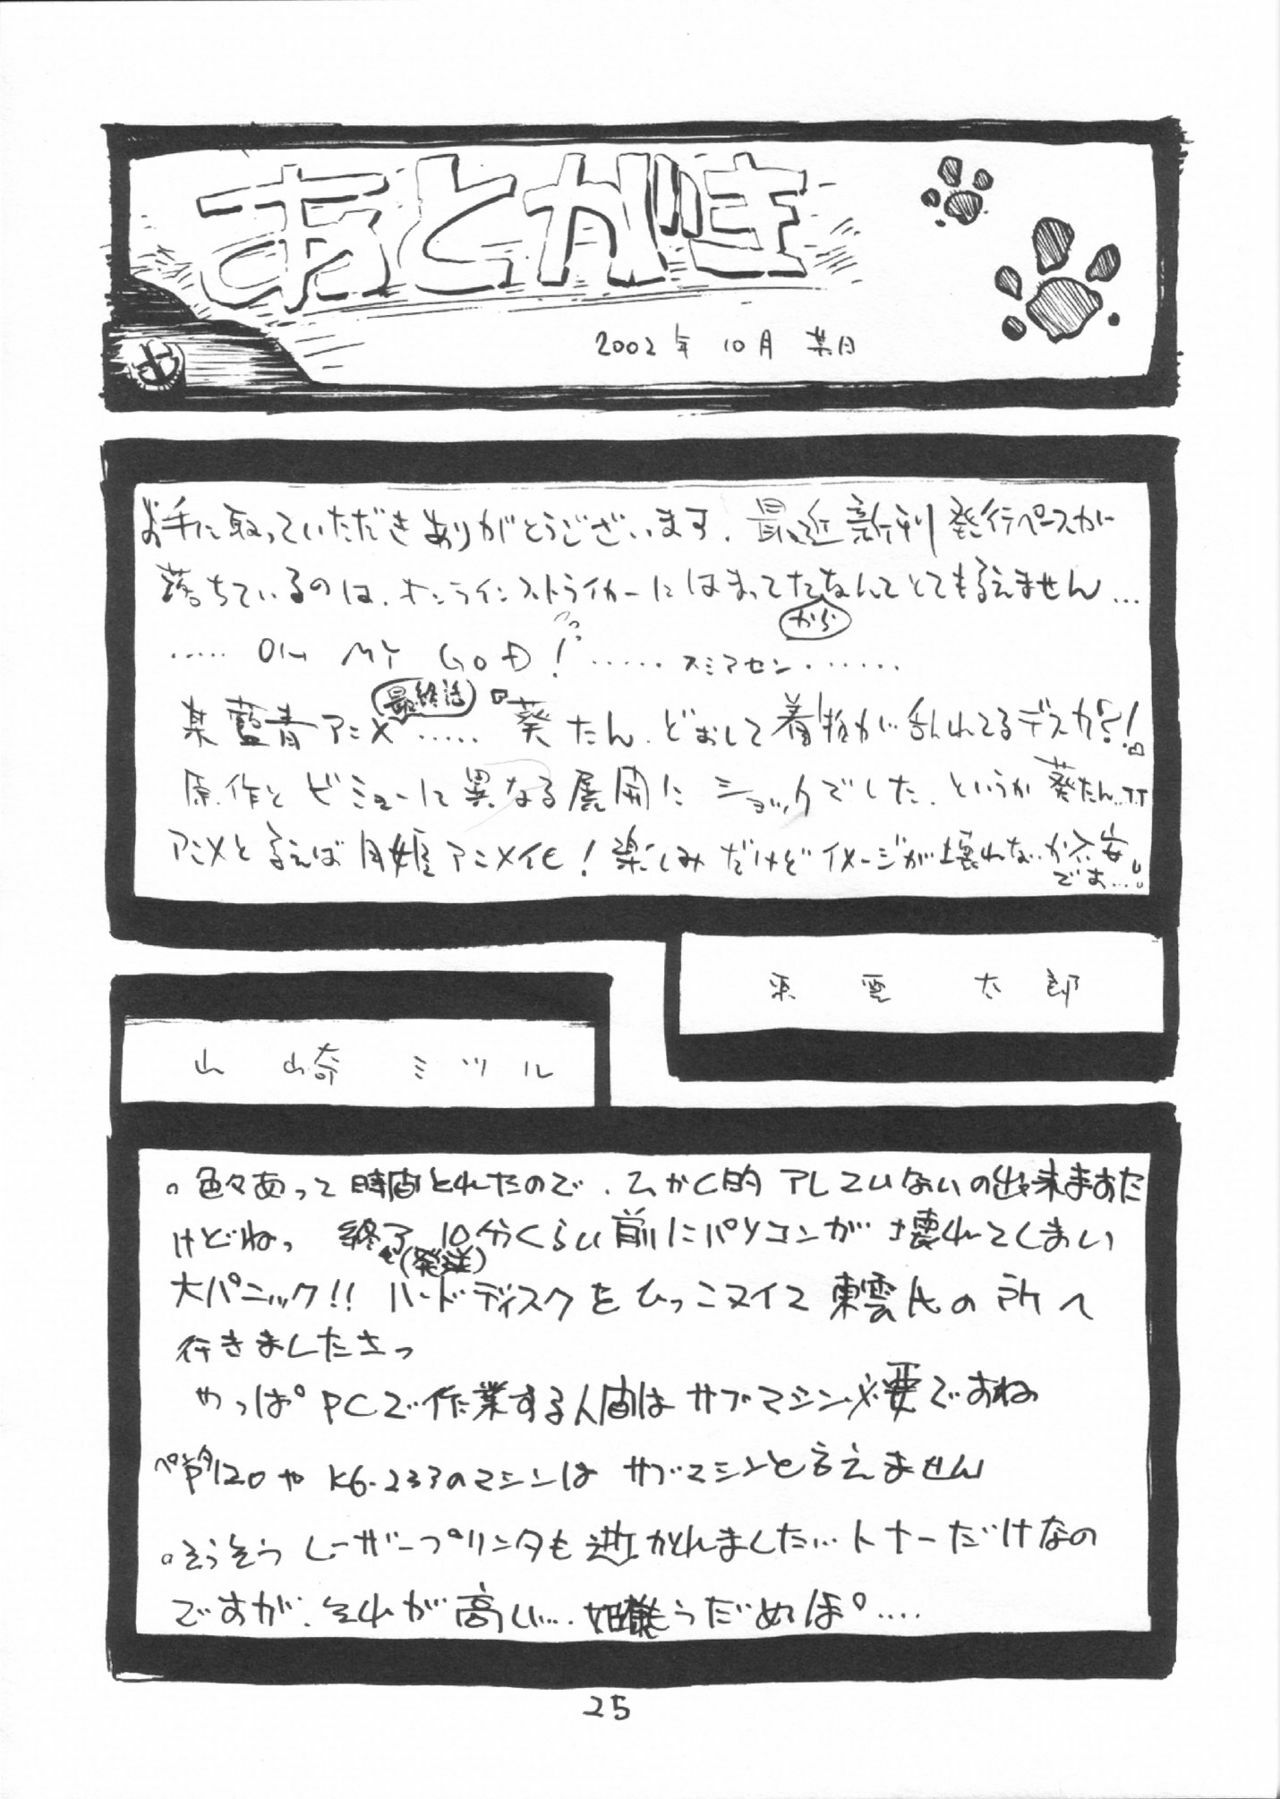 あとがき
2002年 10月 某日
お手に取っていただきありがとうございます。最近新刊発行ペースが
落ちているのは、オンラインストライカーにはまってたなんてとても言えません…
から
…… OH MY GOD! …… スミマセン ……
某藍青アニメ 最終話 …… 葵たん、どおして着物が乱れてるデスカ!?
原作とビミョーに異なる展開にショックでした。というか葵たん…TT
アニメと言えば月姫アニメ化!楽しみだけどイメージが壊れないか不安
です…
東雲 太郎
山崎 ミツル
。色々あって時間とれたので、
けどねっ 終了10分くらい前にパソコンが壊れてしまい
(発送)
大パニック!! ハードディスクをひっこヌイて東雲氏の所へ
行きましたさっ
やっぱPCで作業する人間はサブマシン必要ですね
120やK6-233のマシンはサブマシンと言えません
。そうそうレーザープリンタも逝かれました…トナーだけなの
ですが、それが高い… うだめぽ°....
25